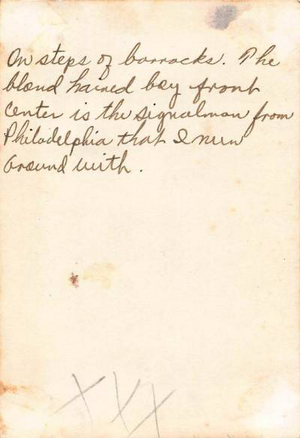 On steps of barracks. The
blond haired boy front
Center is the signalman from
Philadelphia that I run
around with.
XXX